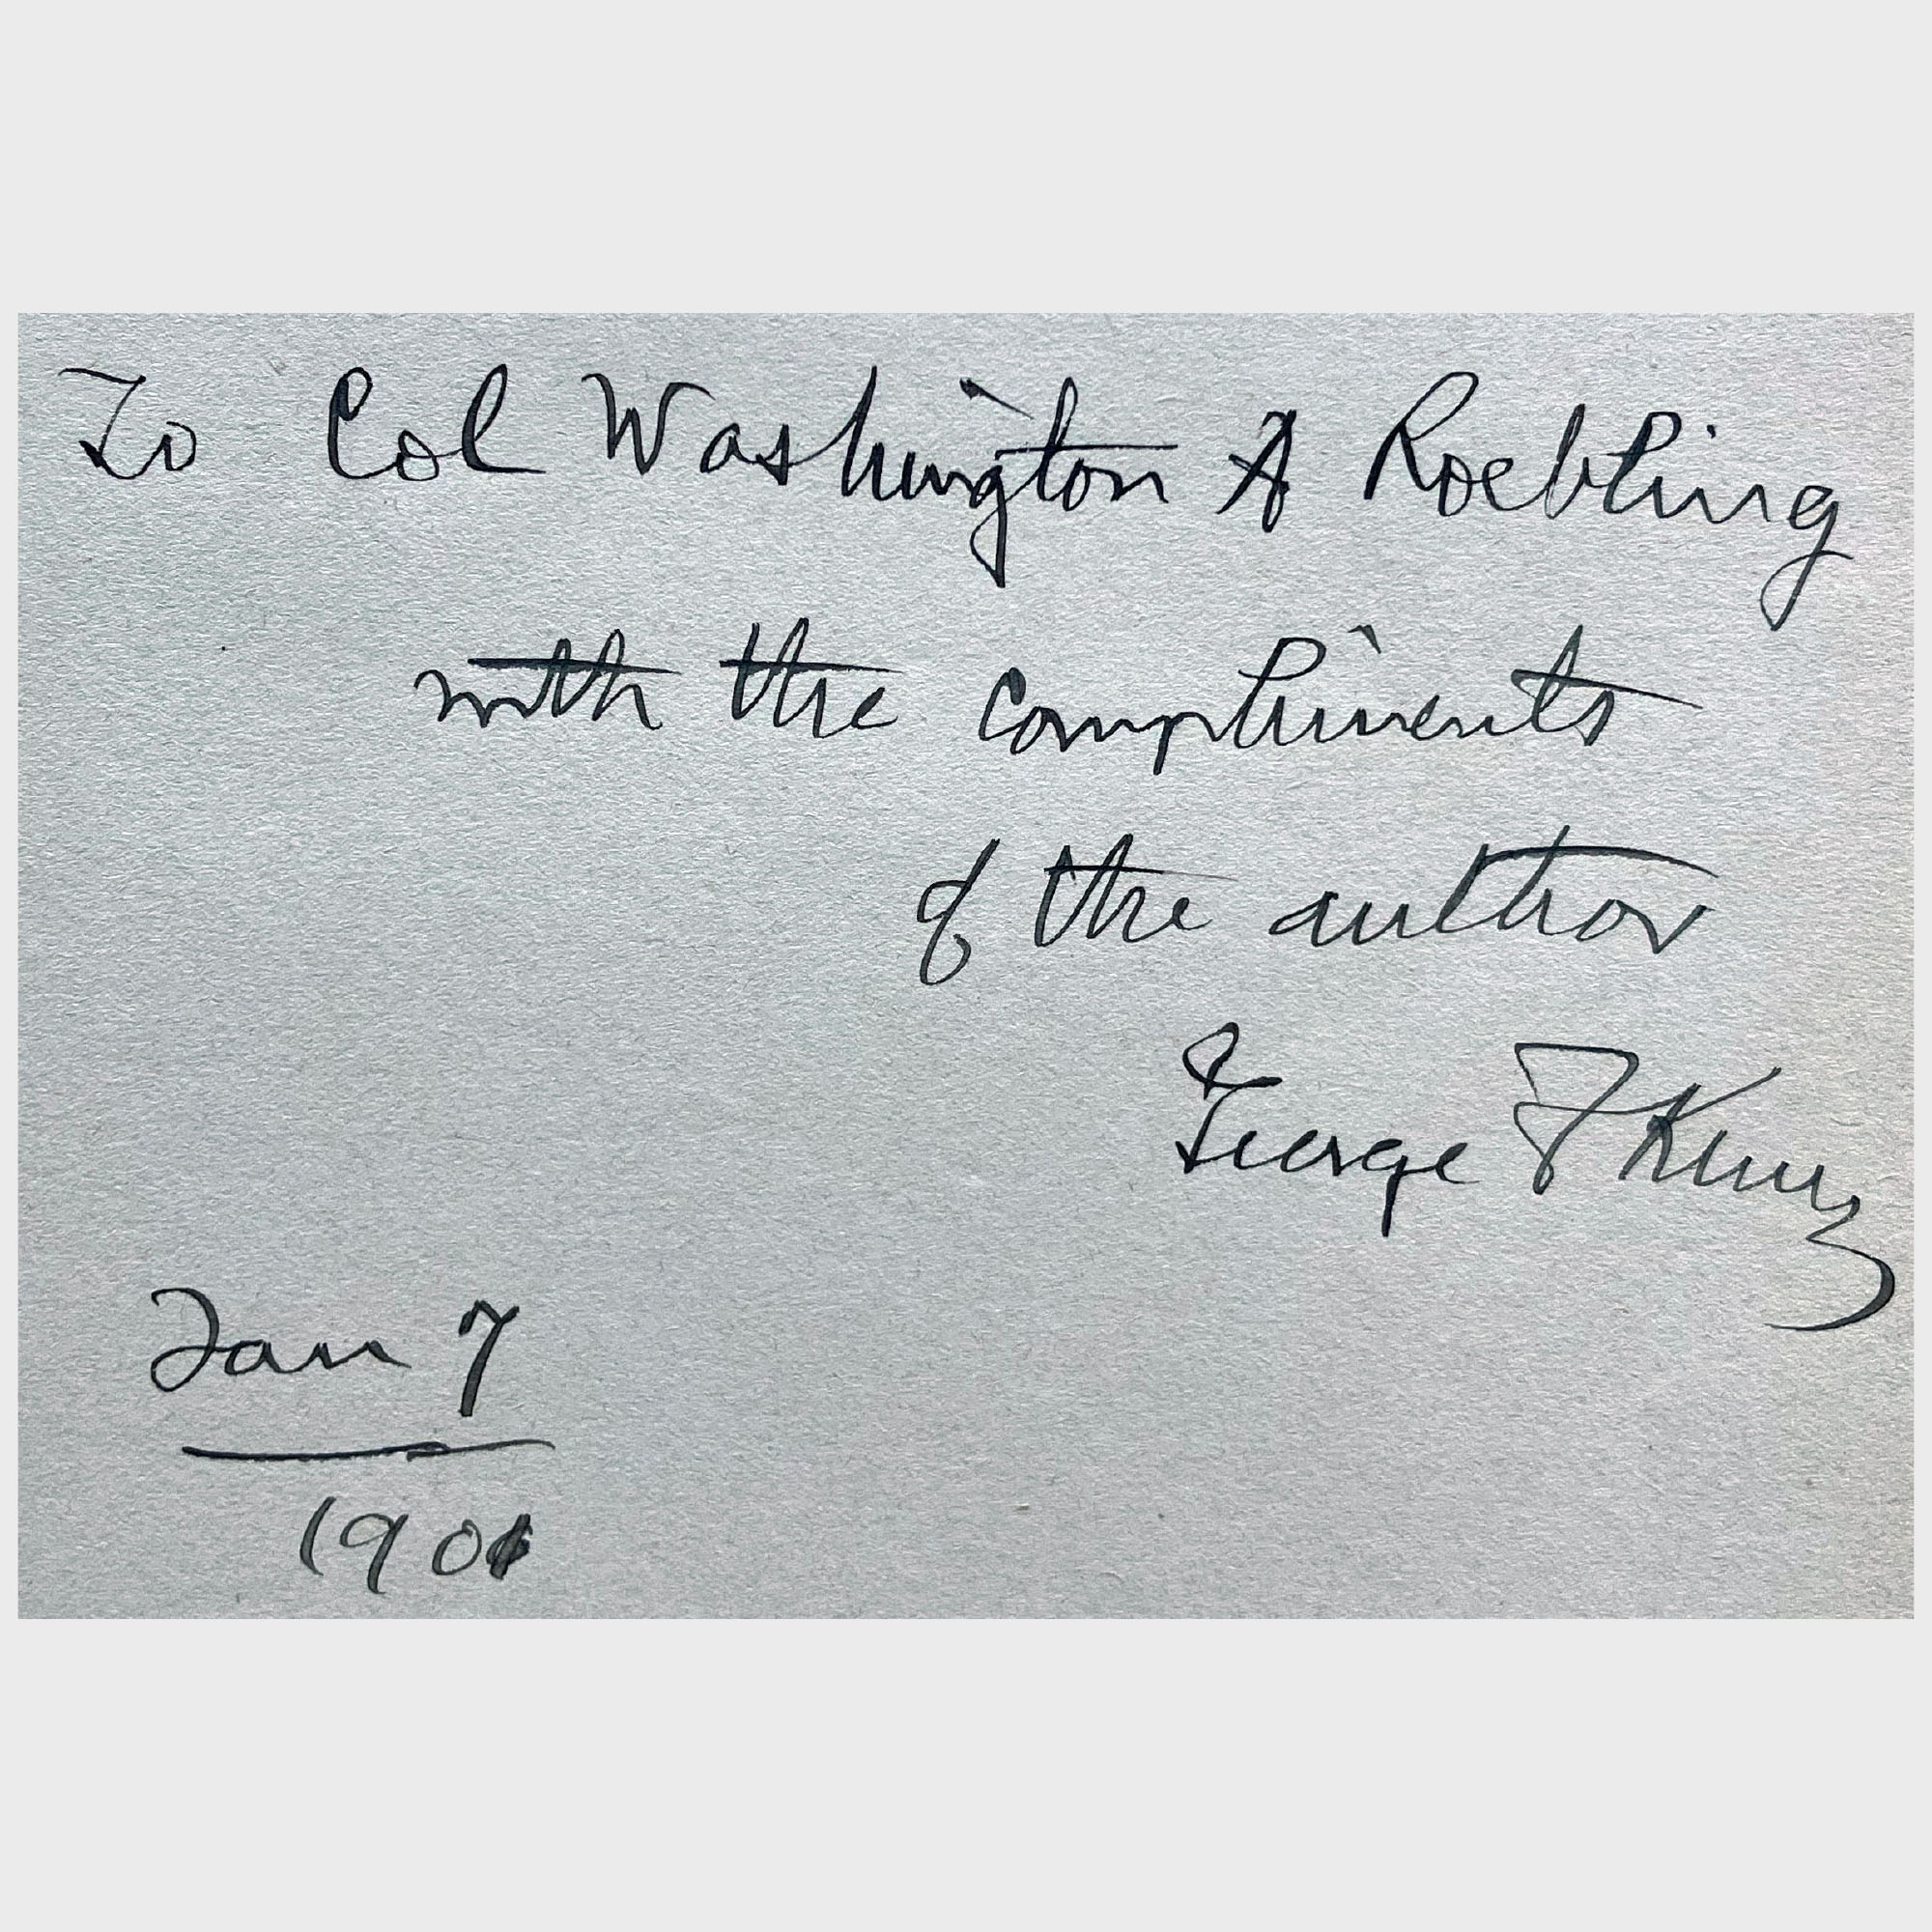 To Col Washington A Roebling
with the compliments
of the author
George F Kunz
Jan 7
1901